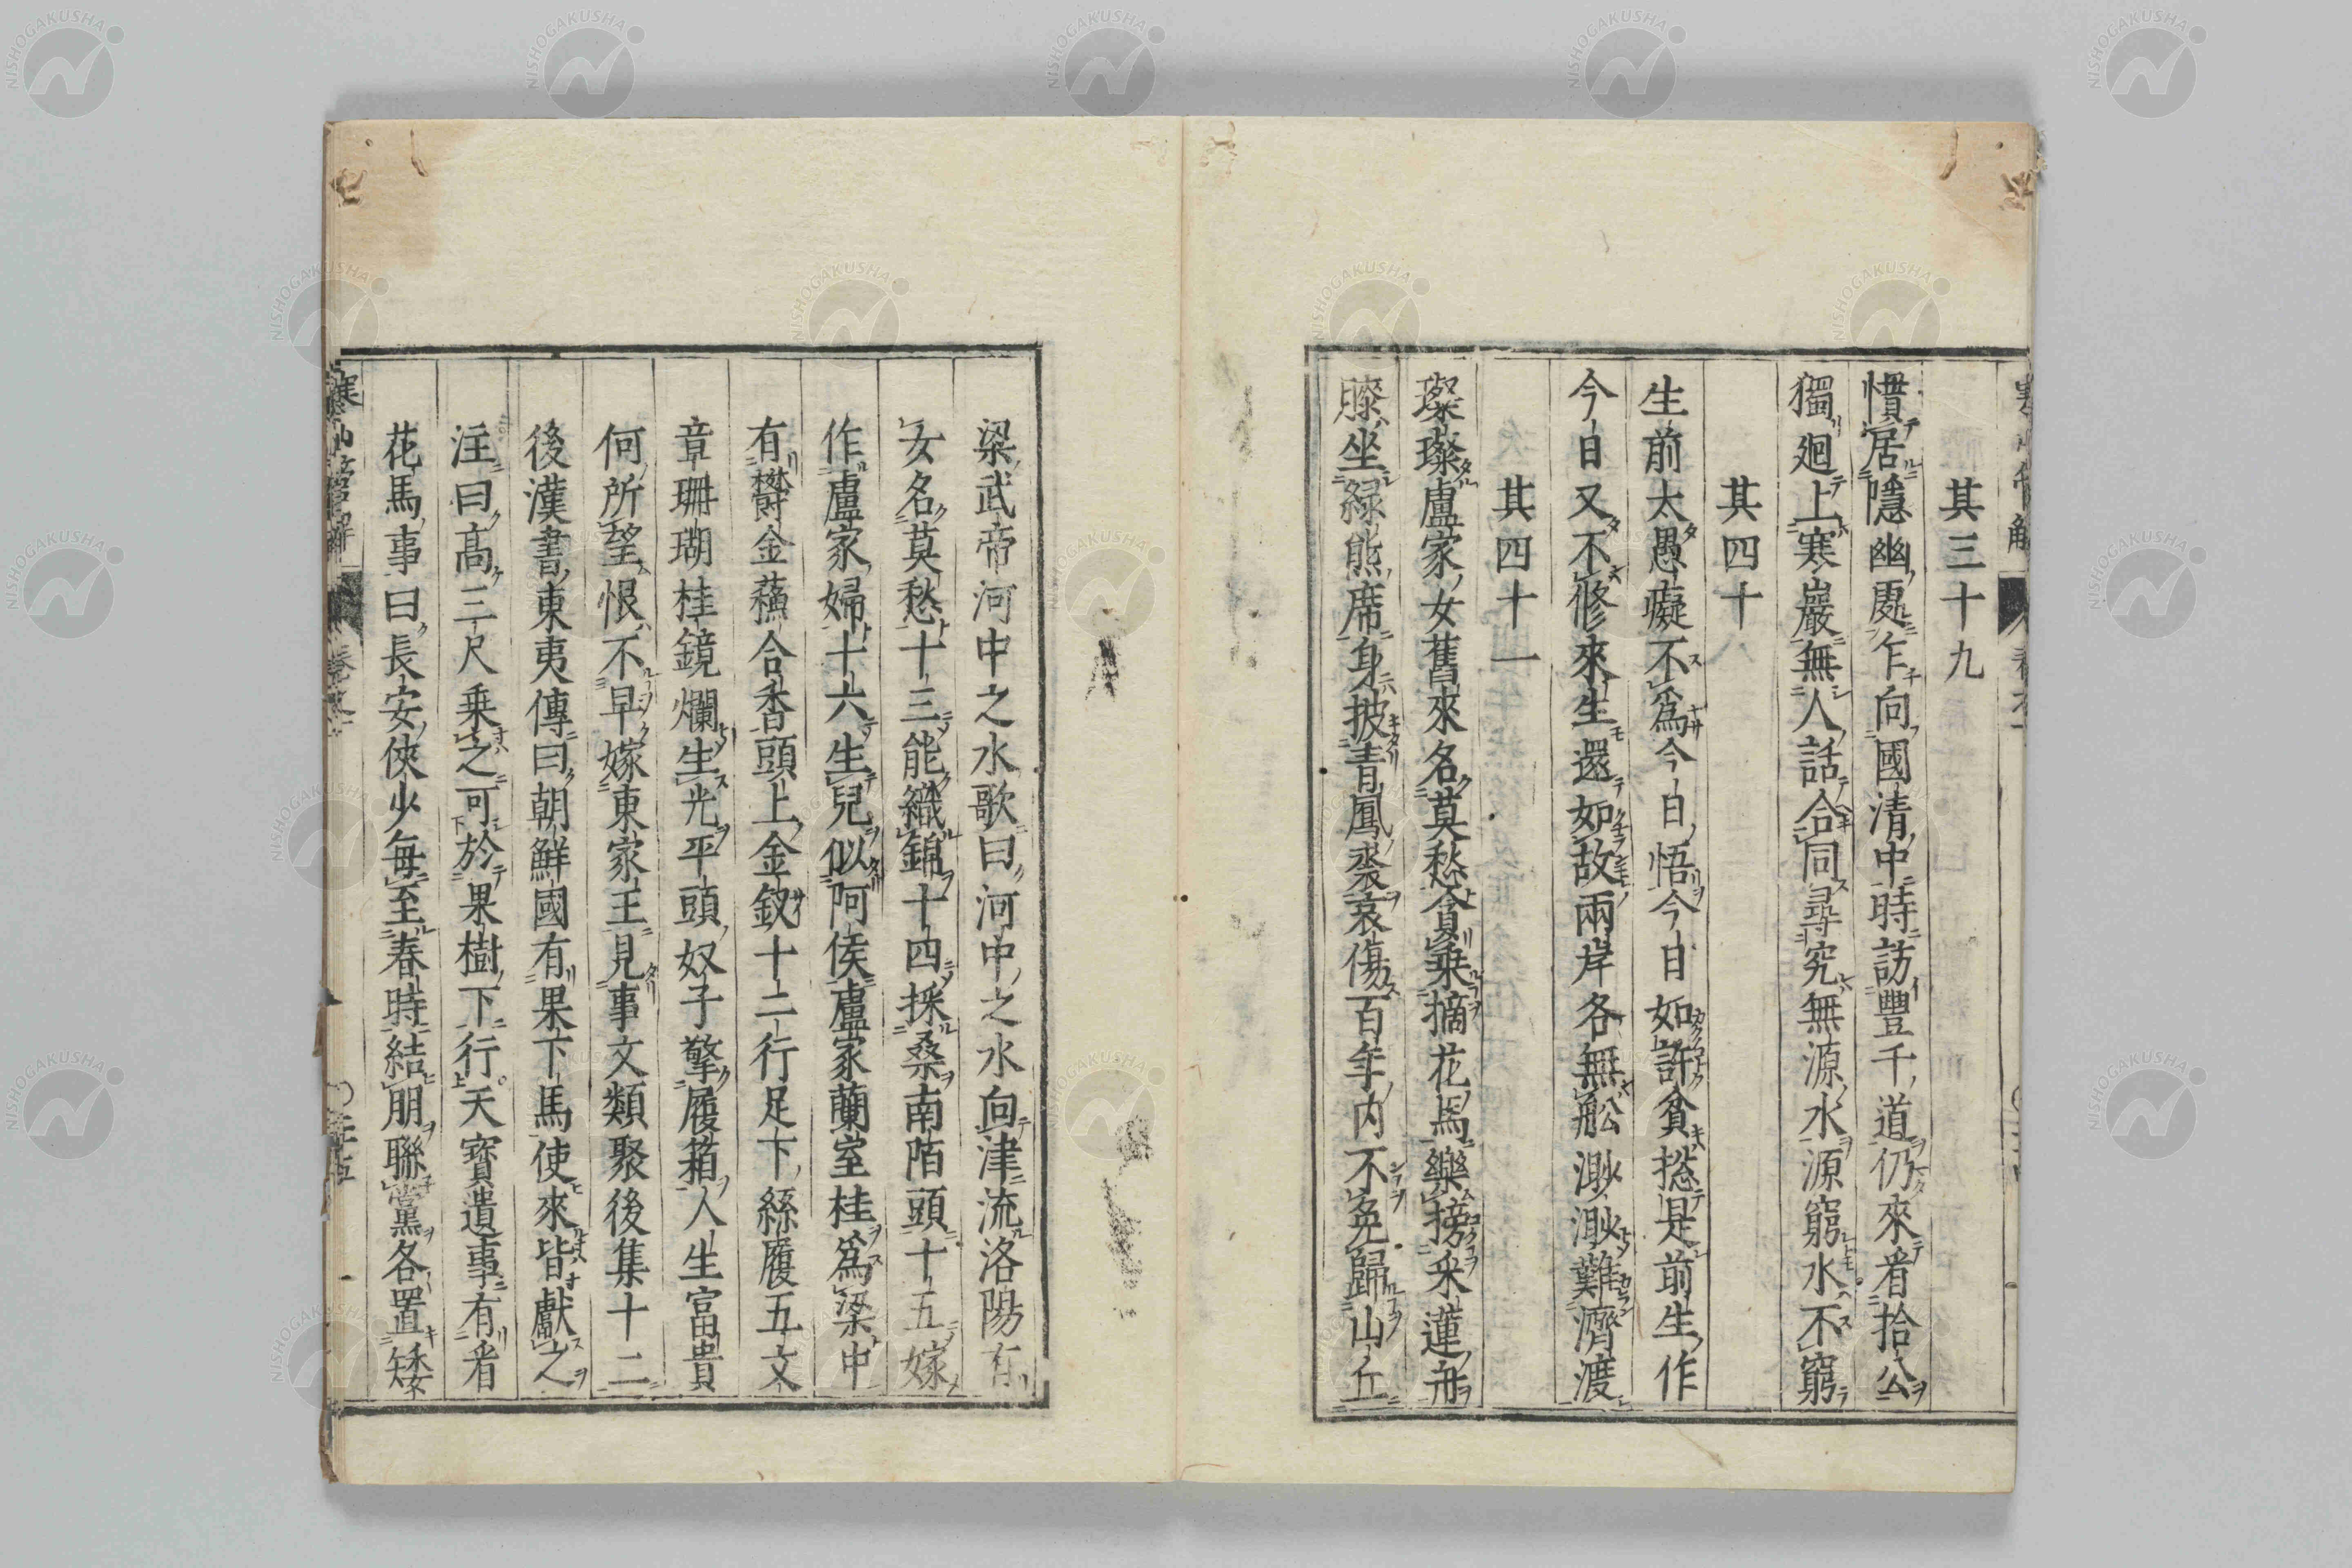 其三十九
慣居隱幽處乍向國清中時訪豐干道仍來看拾公
獨廻上寒巖無人話合同尋究無源水源窮水不窮
其四十
生前太愚癡不爲今日悟今日如許貧揔是前生作
今日又不修來生還如故兩岸各無舩渺渺難濟渡
其四十一
璨璨盧家女舊來名莫愁貪乗摘花馬樂搒采蓮舟
膝坐緑熊席身披青鳳裘哀傷百年内不免歸山丘
梁武帝河中之水歌曰河中之水向津流洛陽有
女名莫愁十三能織錦十四採桑南陌頭十五嫁
作盧家婦十六生兒似阿侯盧家蘭室桂爲梁中
有欝金蘓合香頭上金釵十二行足下絲履五文
章珊瑚桂鏡爛生光平頭奴子擎履箱人生富貴
何所望恨不早嫁東家王見事文類聚後集十二
後漢書東夷傳曰朝鮮國有果下馬使來皆獻之
注曰高三尺乗之可於果樹下行天寶遺事有看
花馬事曰長安俠少每至春時結朋聯黨各置矮
NISHOGAKUSHA